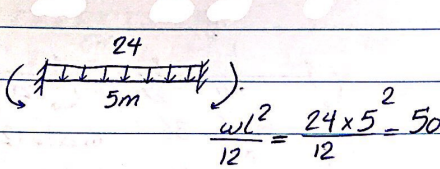 24
5m
wl²/12 = 24×5²/12 = 50